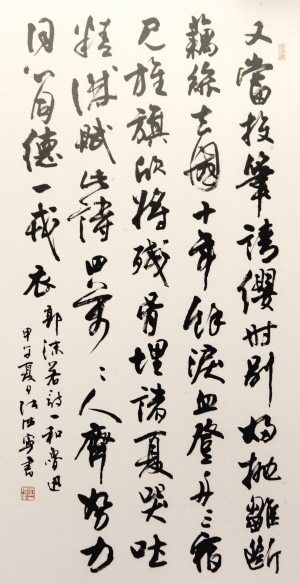 又當投筆請纓时别婦抛雛断
藕絲去國十年餘淚血登舟三宿
见旌旗欣將殘骨埋諸夏哭吐
精誠賦此詩四萬々人齊努力
同心同德一戎衣
郭沫若詩一和魯迅
甲午夏日 書